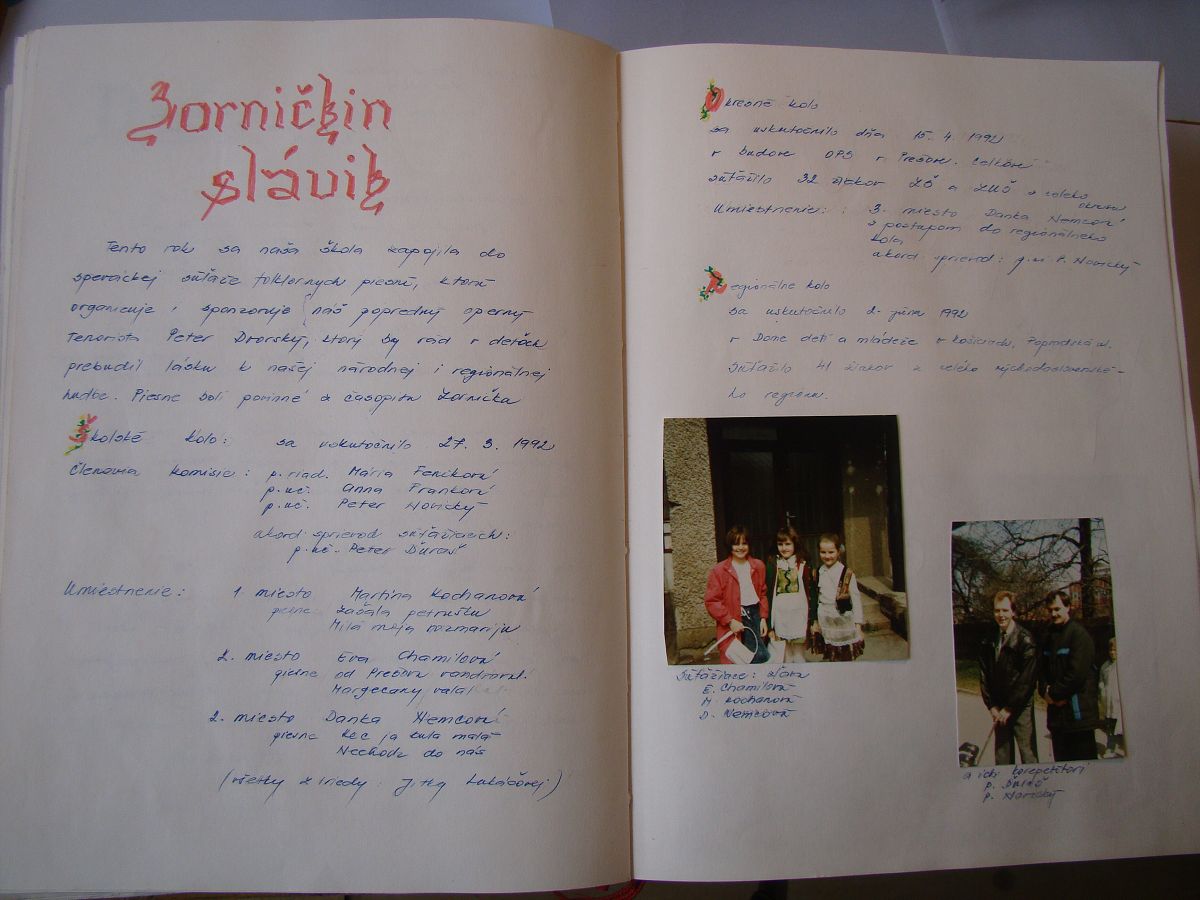 Zorničkin
slávik
Tento rok sa naša škola zapojila do
speváckej súťaže folklornych piesní, ktorú
organizuje i sponzoruje náš popredný operný
tenorista Peter Dvorský, ktorý by rád v deťoch
prebudil lásku k našej národnej i regionálnej
hudbe. Piesne boli povinné z časopisu Zornička
Školské kolo: sa uskutočnilo 27. 3. 1992
Členovia komisie: p. riad. Mária Feníková
p. uč. Anna Franková
p. uč. Peter Novický
akord. sprievod súťažiacich:
p. uč. Peter Ďuraš
Umiestnenie: 1. miesto Martina Kochanová
piesne Zašala petrušku
Milá moja rozmariju
2. miesto Eva Chamilová
piesne od Prešova
Margecany
2. miesto Danka Nemcová
piesne Kec ja bula mala
Nechodz do nás
(všetky z triedy: Jitky Lukáčovej)
Okresné kolo
sa uskutočnilo dňa 15. 4. 1992
v budove OPS v Prešove. Celkove
súťažilo 32 žiakov ZŠ a ZUŠ z celého
okresu
Umiestnenie: : 3. miesto Danka Nemcová
s postupom do regionálneho
kola
akord. sprievod: p. uč P. Novický
Regionálne kolo
sa uskutočnilo 2. júna 1992
v Dome detí a mládeže v Košiciach, Popradská ul.
Súťažilo 41 žiakov z celého východoslovenské-
ho regiónu.
Súťažiace: zľava
E. Chamilová
M. Kochanová
D. Nemcová
a ich korepetitori
p. Ďuraš
p. Novický